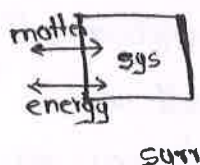 matter
sys
energy
surr